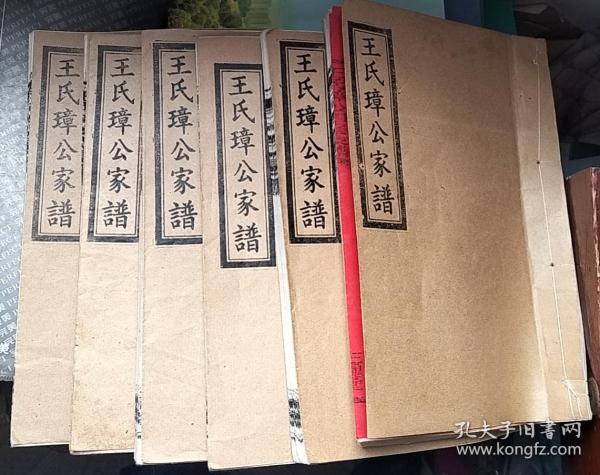 王氏璋公家譜
王氏璋公家譜
王氏璋公家譜
王氏璋公家譜
王氏璋公家譜
王氏璋公家譜
孔夫子旧书网
www.kongfz.com